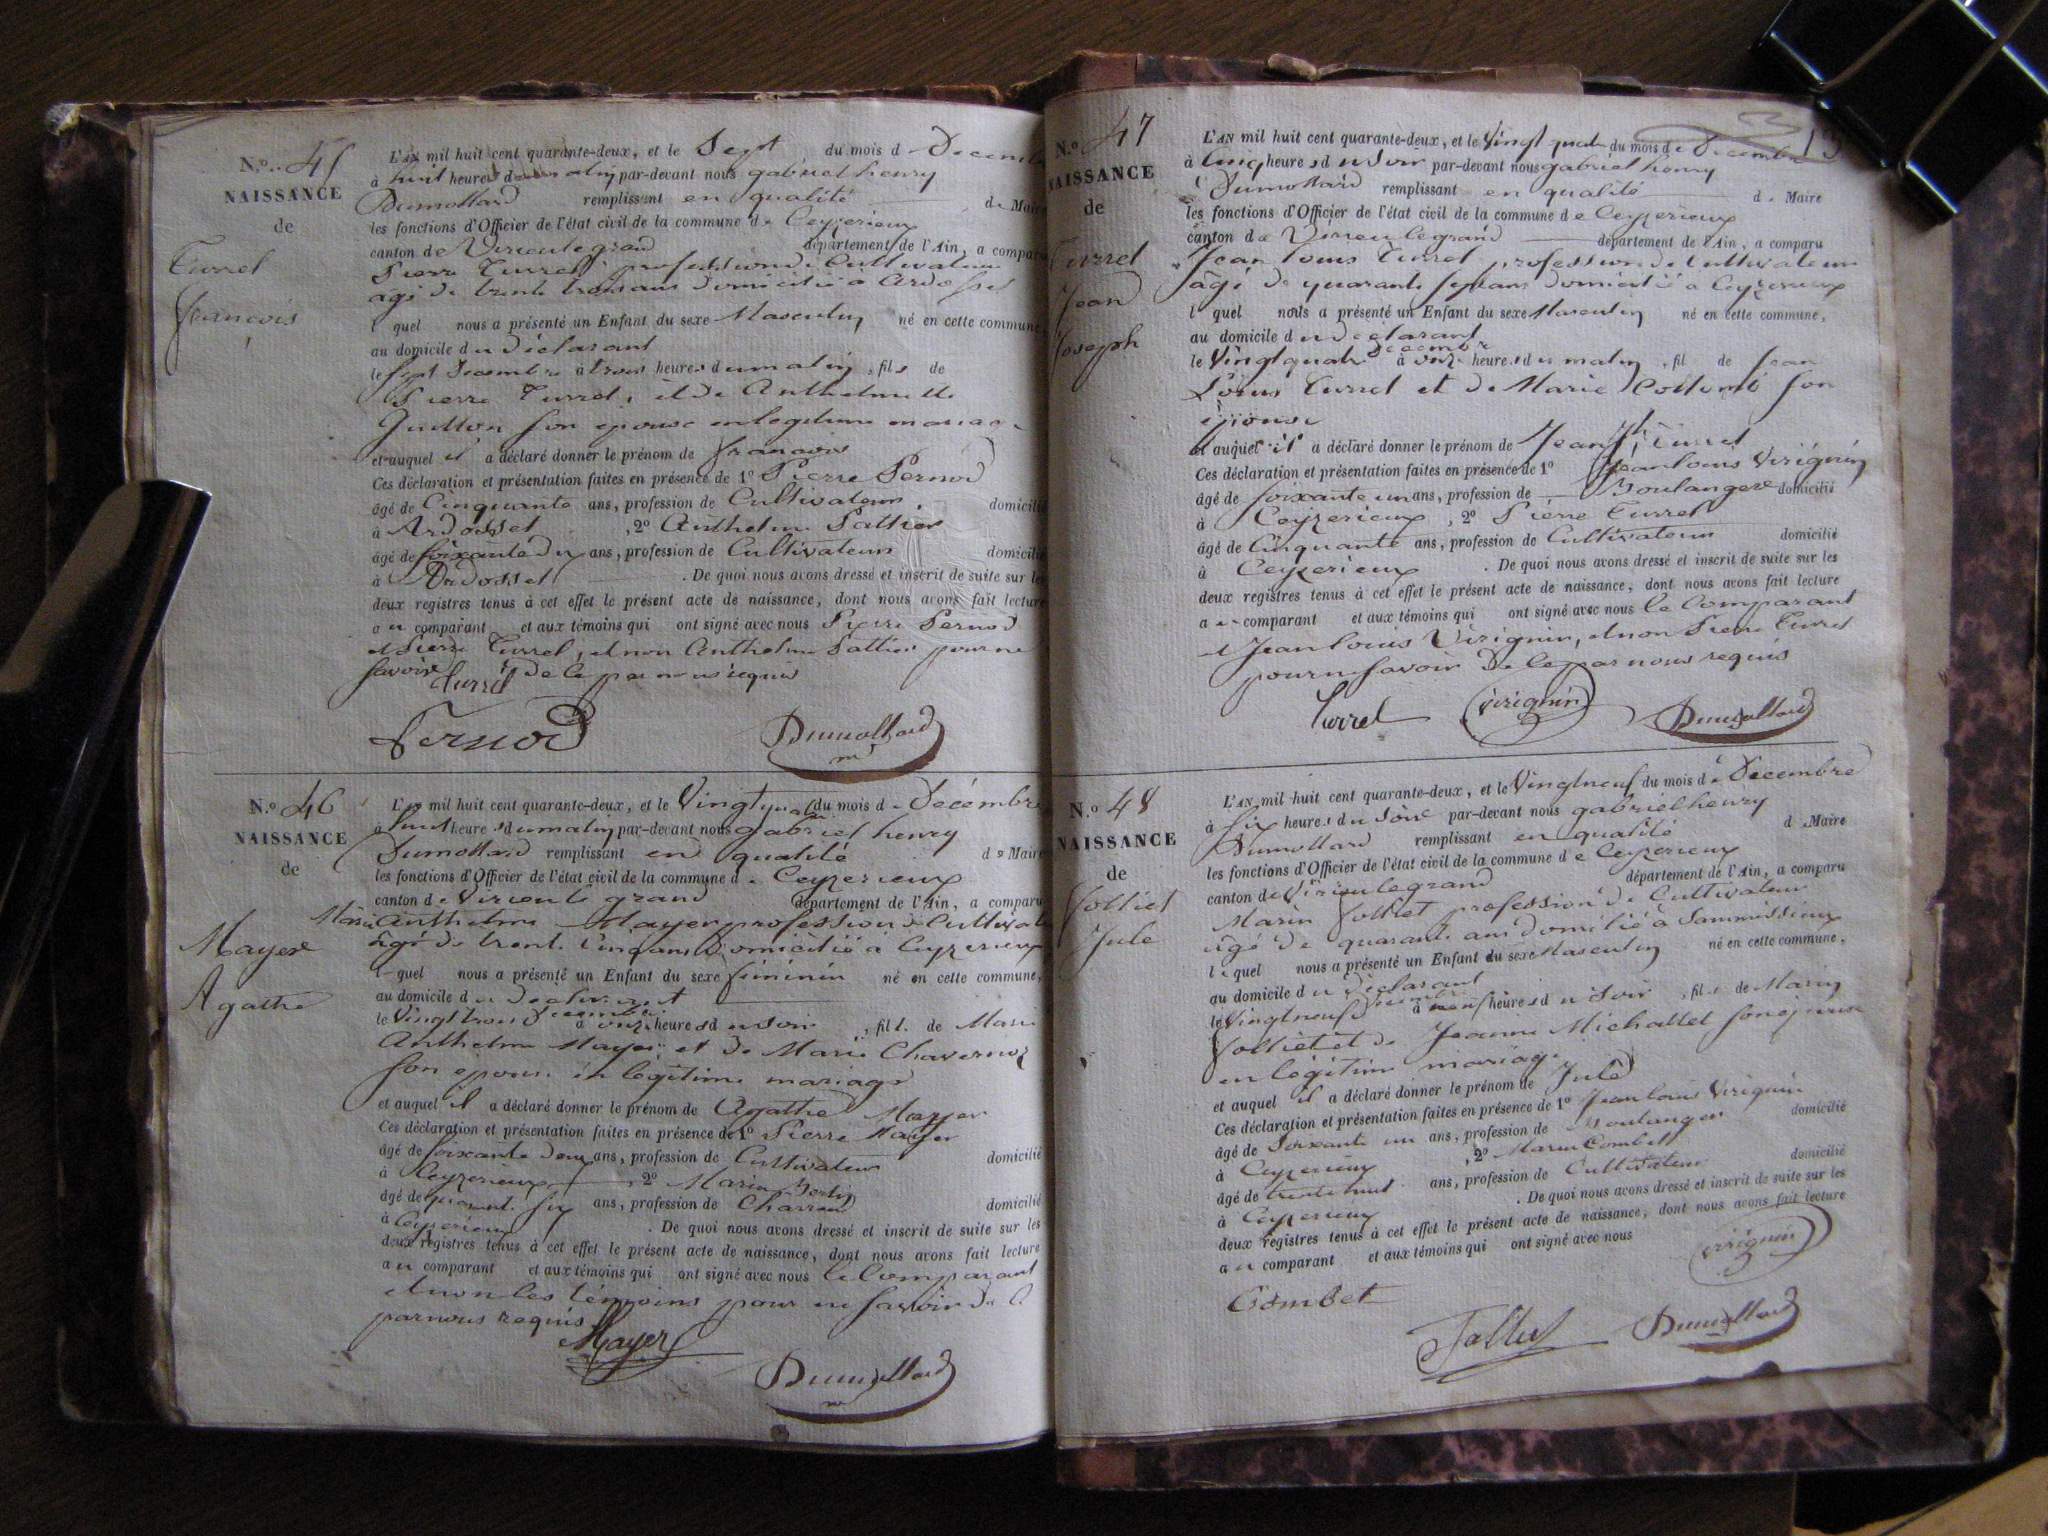 N.º 45
NAISSANCE
de
Turrel
François
L'AN mil huit cent quarante-deux, et le Sept du mois d e Decemb
à huit heures du matin par-devant nous gabriel henry
Dumollard remplissant en qualité de Maire
les fonctions d'Officier de l'état civil de la commune de Ceyzerieux
canton de Virieulegrand département de l'Ain, a comparu
Pierre Turrel profession de Cultivateur
agé de trente trois ans domicilié à Ardosset
l quel nous a présenté un Enfant du sexe Masculin né en cette commune,
au domicile du déclarant
le Sept Decembre à trois heures du matin, fils de
Pierre Turrel, et de Anthelmette
Guillon son epouse en legitime mariage
et auquel il a déclaré donner le prénom de françois
Ces déclaration et présentation faites en présence de 1º Pierre Pernod
âgé de Cinquante ans, profession de Cultivateur domicilié
à Ardosset , 2º Anthelme Pattier
âgé de soixante dix ans, profession de Cultivateur domicilié
à Ardosset . De quoi nous avons dressé et inscrit de suite sur les
deux registres tenus à cet effet le présent acte de naissance, dont nous avons fait lecture
au comparant et aux témoins qui ont signé avec nous Pierre Pernod
et Pierre Turrel, et non Anthelme Pattier pour ne
savoir de ce par nous requis
Turrel
Pernod Dumollard
N.º 46
NAISSANCE
de
Mayer
Agathe
L'AN mil huit cent quarante-deux, et le Vingt quatre du mois d e Décembre
à huit heures du matin par-devant nous gabriel henry
Dumollard remplissant en qualité de Maire
les fonctions d'Officier de l'état civil de la commune d e Ceyzerieux
canton de Virieu le grand département de l'Ain, a comparu
Marie Anthelme Mayer profession de Cultivat
âgé de trente Cinq ans domicilié à Ceyzerieux
le quel nous a présenté un Enfant du sexe féminin né en cette commune,
au domicile du declarant
le Vingt trois Decembre à onze heures du soir , fille de Marie
Anthelme Mayer et de Marie Chavernoz
son epouse en legitime mariage
et auquel il a déclaré donner le prénom de Agathe Mayer
Ces déclaration et présentation faites en présence de 1º Pierre Mayer
âgé de soixante deux ans, profession de Cultivateur domicilié
à Ceyzerieux , 2º Marin
âgé de quarante six ans, profession de Charron domicilié
à Ceyzerieux . De quoi nous avons dressé et inscrit de suite sur les
deux registres tenus à cet effet le présent acte de naissance, dont nous avons fait lecture
au comparant et aux témoins qui ont signé avec nous le Comparant
et non les témoins pour ne savoir de ce
par nous requis
Mayer
Dumollard
13
N.º 47
NAISSANCE
de
Turrel
Jean
Joseph
L'AN mil huit cent quarante-deux, et le Vingt quatre du mois de Decembre
à Cinq heures du soir par-devant nous gabriel henry
Dumollard remplissant en qualité de Maire
les fonctions d'Officier de l'état civil de la commune de Ceyzerieux
canton de Virieulegrand département de l'Ain, a comparu
Jean louis Turrel profession de Cultivateur
âgé de quarante sept ans domicilié à Ceyzerieux
l quel nous a présenté un Enfant du sexe Masculin né en cette commune,
au domicile du déclarant
le Vingt quatre Decembre à onze heures du matin, fil de Jean
Louis Turrel et de Marie Collomb son
épouse
et auquel il a déclaré donner le prénom de Jean Jh Turrel
Ces déclaration et présentation faites en présence de 1º Jean louis Virignin
âgé de soixante un ans, profession de Boulanger domicilié
à Ceyzerieux , 2º Pierre Turrel
âgé de Cinquante ans, profession de Cultivateur domicilié
à Ceyzerieux . De quoi nous avons dressé et inscrit de suite sur les
deux registres tenus à cet effet le présent acte de naissance, dont nous avons fait lecture
au comparant et aux témoins qui ont signé avec nous le Comparant
et Jean louis Virignin, et non Pierre Turrel
pour ne savoir de ce par nous requis
Turrel Virignin Dumollard
N.º 48
NAISSANCE
de
Jolliet
Jule
L'AN mil huit cent quarante-deux, et le Vingt neuf du mois de Decembre
à six heures du soir par-devant nous gabriel henry
Dumollard remplissant en qualité d Maire
les fonctions d'Officier de l'état civil de la commune de Ceyzerieux
canton de Virieulegrand département de l'Ain, a comparu
Marin Jolliet profession de Cultivateur
agé de quarante ans domicilié à Sammissieux
le quel nous a présenté un Enfant du sexe Masculin né en cette commune,
au domicile du déclarant
le Vingt neuf Decembre à neuf heures du soir , fils de Marin
Jolliet et de Jeanne Michallet son épouse
en légitime mariage
et auquel il a déclaré donner le prénom de Jule
Ces déclaration et présentation faites en présence de 1º Jean louis Virignin
âgé de Soixante un ans, profession de Boulanger domicilié
à Ceyzerieux , 2º Marin Combet
âgé de trente huit ans, profession de Cultivateur domicilié
à Ceyzerieux . De quoi nous avons dressé et inscrit de suite sur les
deux registres tenus à cet effet le présent acte de naissance, dont nous avons fait lecture
au comparant et aux témoins qui ont signé avec nous Virignin
Combet
Jolliet Dumollard